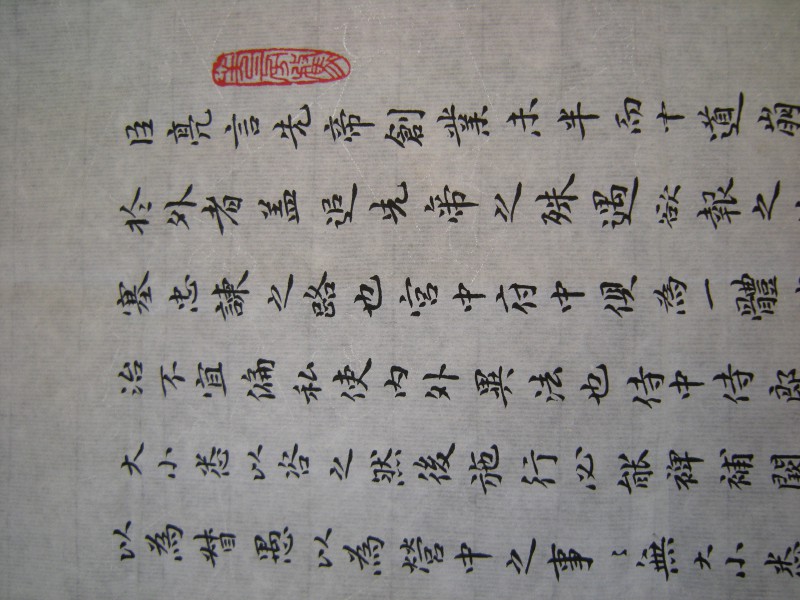 臣亮言先帝創業未半而中道崩
於外者盖追先帝之殊遇欲報之
塞忠諫之路也宮中府中俱為一體
治不宜偏私使内外異法也侍中侍郎
大小悉以咨之然後施行必能裨補闕
以為督愚以為營中之事〻無大小悉